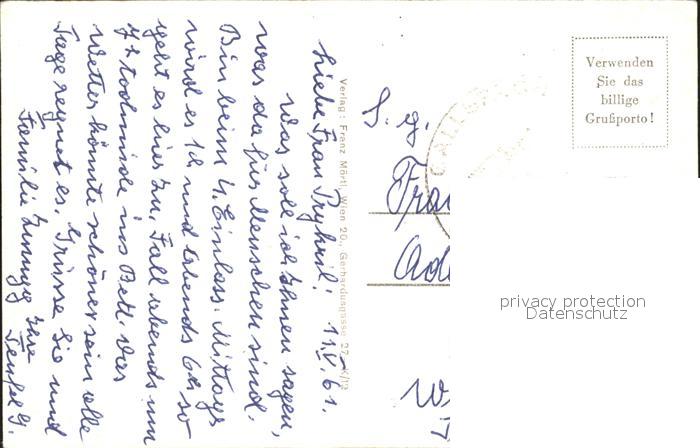 Liebe Frau 11.V.61.
Was soll ich Ihnen sagen,
was da für Menschen sind.
Bin beim 4. Einlass. Mittags
wird es 12 und Abends 6h so
geht es hier zu. Fall abends um
7h todmüde ins Bett. Das
Wetter könnte schöner sein alle
Tage regnet es. Grüsse Sie und
Familie Ihre
Verlag: Franz Mörtl, Wien 20., Gerhardusgasse 27
S. g.
Frau
Ad
W
Verwenden
Sie das
billige
Grußporto!
privacy protection
Datenschutz